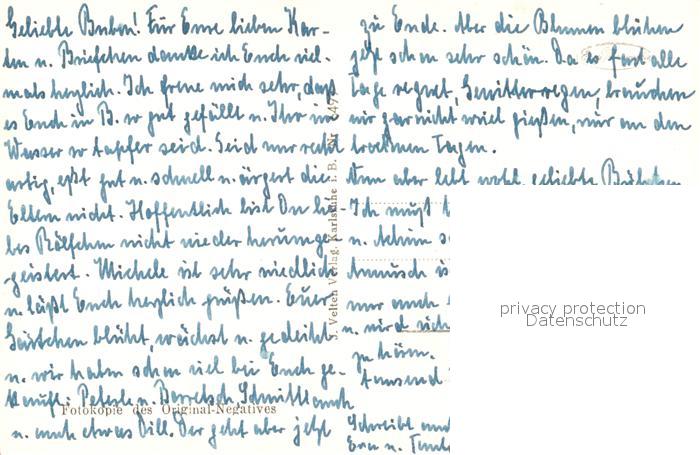 Geliebte Buben! Für Eure lieben Kar-
ten u. Briefchen danke ich Euch viel-
mals herzlich. Ich freue mich sehr, daß
es Euch in B. so gut gefällt u. Ihr im
Wasser so tapfer seid. Seid nur recht
artig, eßt gut u. schnell u. ärgert die
Eltern nicht. Hoffentlich bist Du lie-
bes Rölfchen nicht wieder herumge-
geistert. Michele ist sehr niedlich
u. läßt Euch herzlich grüßen. Euer
Gärtchen blüht, wächst u. gedeiht
u. wir haben schon viel bei Euch ge-
kauft: Petersle u. Borretsch, Schnittlauch
u. auch etwas Dill. Der geht aber jetzt
Fotokopie des Original-Negatives
J. Velten Verlag, Karlsruhe i. B. Nr.
zu Ende. Aber die Blumen blühen
jetzt schon sehr schön. Da es fast alle
Tage regnet, Gewitterregen, brauchen
wir gar nicht viel gießen, nur an den
trockenen Tagen.
Nun aber lebt wohl, geliebte
Ich muß
u.
ist
nur auch
u. wird
zu hören.
Tausend
Schreibt
u.
privacy protection
Datenschutz